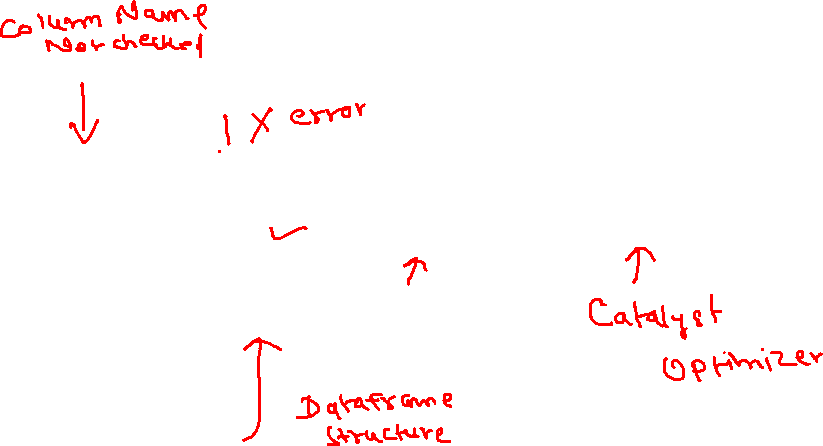 Column Name
Not checked
! X error
Catalyst
Optimizer
Dataframe
structure